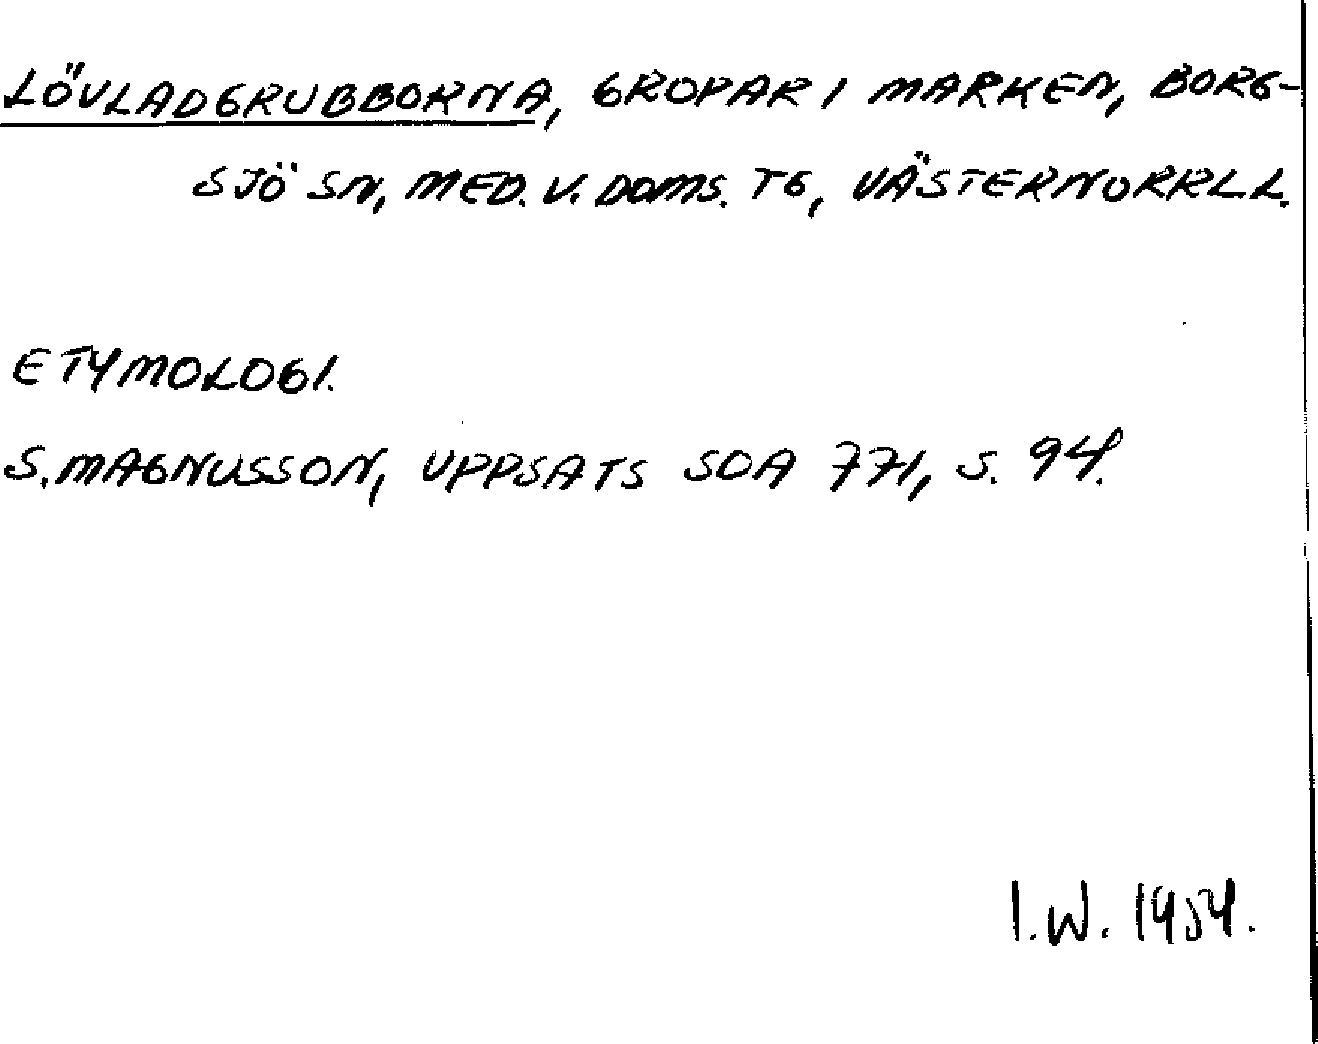 LÖVLADGRUBBORNA, GROPAR I MARKEN, BORG-
SJÖ SN, MED. V. DOMS. TG, VÄSTERNORRL L.
ETYMOLOGI.
S. MAGNUSSON, UPPSATS SOA 771, S. 94.
I.W. 1954.